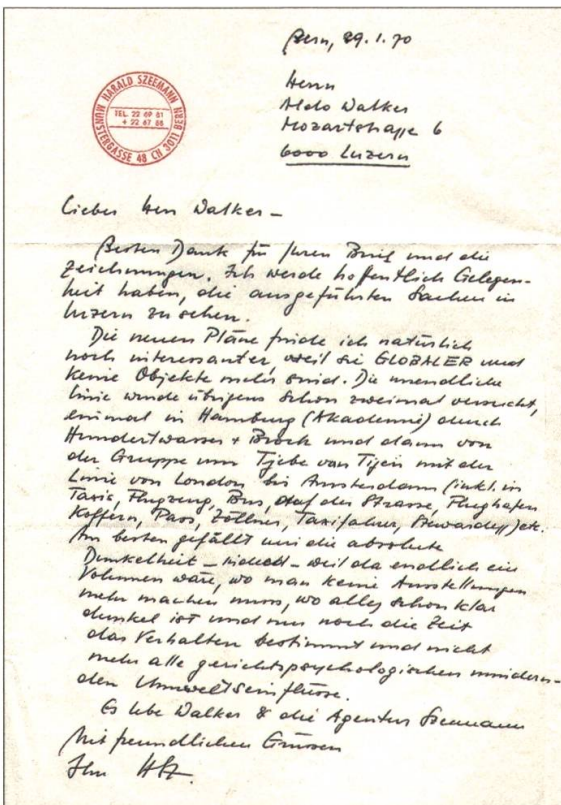 Bern, 29.1.70
HARALD SZEEMANN
MÜNSTERGASSE 48 CH 3011 BERN
TEL. 22 69 61
+ 22 67 86
Herrn
Aldo Walker
Mozartstrasse 6
6000 Luzern
Lieber Herr Walker –
Besten Dank für Ihren Brief und die
Zeichnungen. Ich werde hoffentlich Gelegen-
heit haben, die ausgeführten Sachen in
Luzern zu sehen.
Die neuen Pläne finde ich natürlich
noch interessanter, weil sie GLOBALER und
keine Objekte mehr sind. Die unendliche
Linie wurde übrigens schon zweimal versucht,
einmal in Hamburg (Akademie) durch
Hundertwasser + Brock und dann von
der Gruppe um Tjebe van Tijen mit der
Linie von London bis Amsterdam (inkl. in
Taxis, Flugzeug, Bus, auf der Strasse, Flughafen
Koffern, Pass, Zöllner, Taxifahrer, Stewardess) etc.
Am besten gefällt mir die absolute
Dunkelheit – – weil da endlich ein
Volumen wäre, wo man keine Ausstellungen
mehr machen muss, wo alles schon klar
dunkel ist und nur noch die Zeit
das Verhalten bestimmt und nicht
mehr alle gerichtspsychologischen mindern-
den Umwelteinflüsse.
Es lebe Walker & die Agentur Szeemann
Mit freundlichen Grüssen
Ihr HSz.